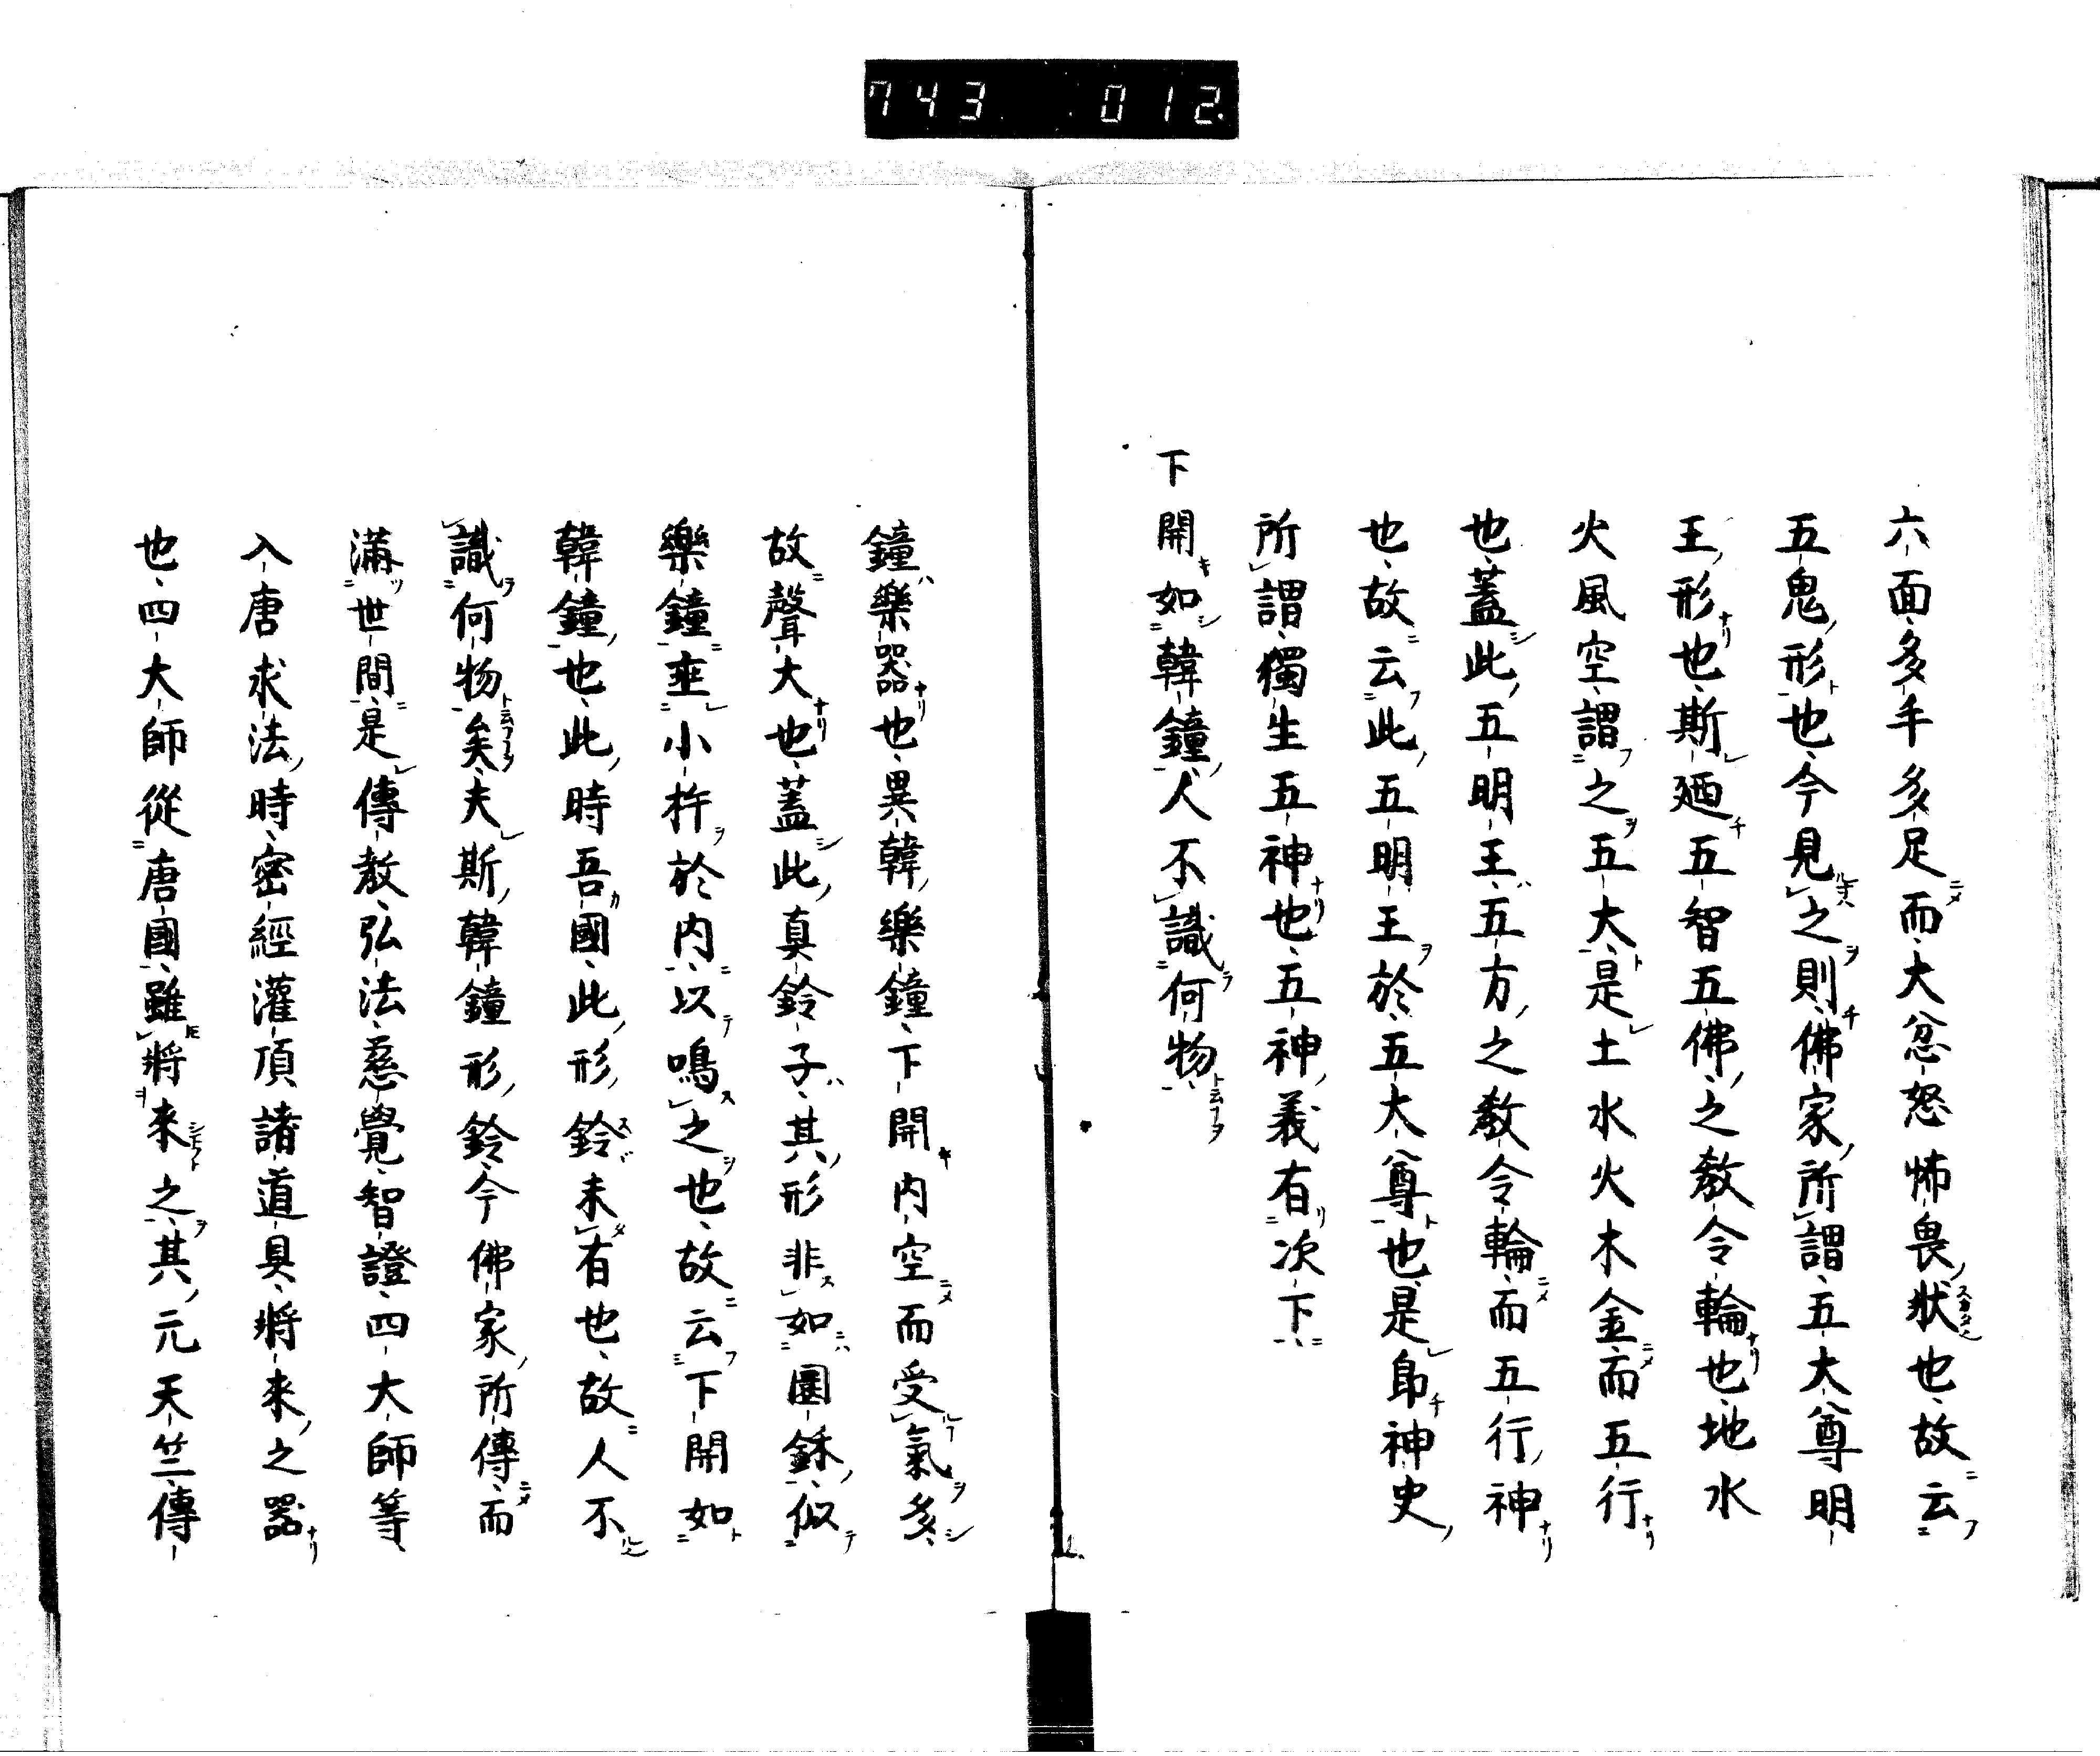 743 012.
六面多手多足而大忿怒怖畏状也故云
五鬼形也今見之則佛家所謂五大尊明
王形也斯廼五智五佛之教令輪也地水
火風空謂之五大是土水火木金而五行
也蓋此五明王五方之教令輪而五行神
也故云此五明王於五大尊也是即神史
所謂獨生五神也五神義有次下
下開如韓鐘人不識何物
鐘樂器也異韓樂鐘下開内空而受氣多
故聲大也蓋此真鈴子其形非如園鉌似
樂鐘垂小杵於内以鳴之也故云下開如
韓鐘也此時吾國此形鈴未有也故人不
識何物矣夫斯韓鐘形鈴今佛家所傳而
滿世間是傳教弘法慈覺智證四大師等
入唐求法時密經灌頂諸道具將来之器
也四大師從唐國雖將來之其元天竺傳